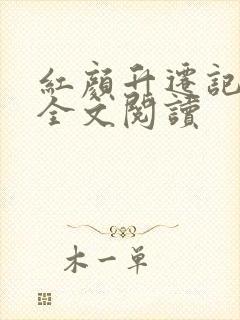 紅顔升遷記
全文閱讀
木一單